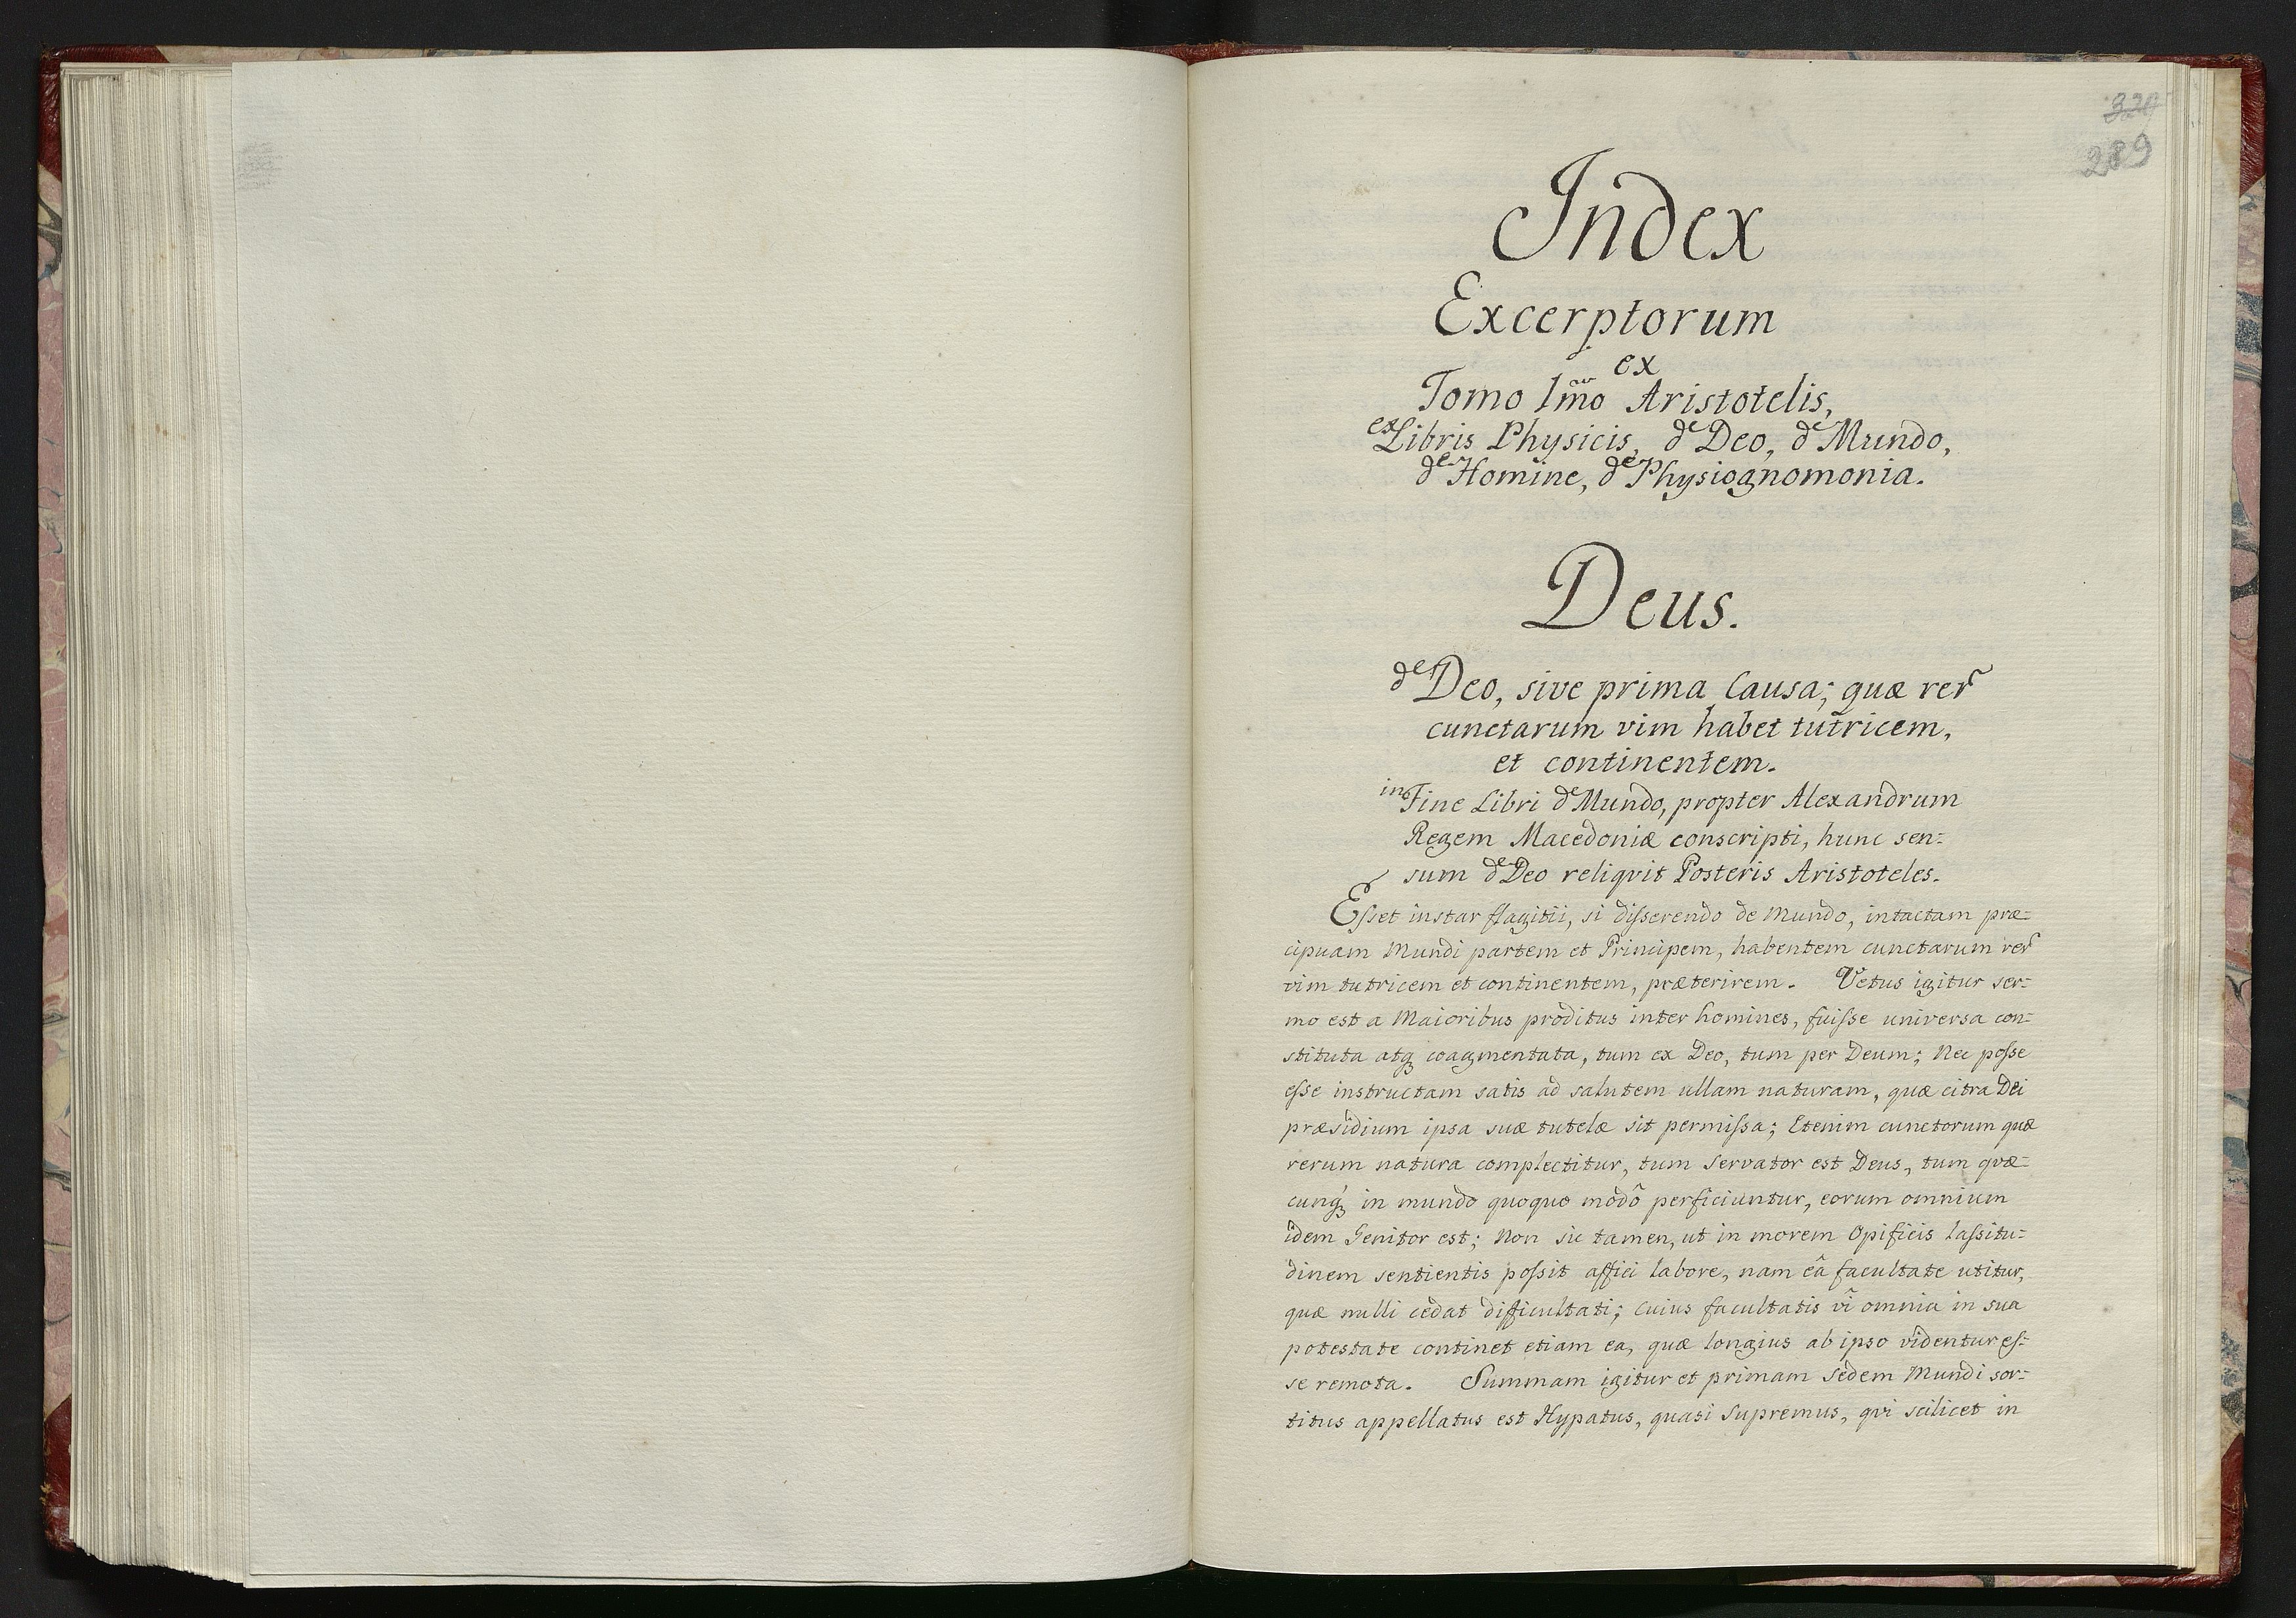 329
289
Index
Excerptorum
ex
Tomo 1m̃o Aristotelis,
ex Libris Physicis, de Deo, de Mundo,
de Homine, de Physiognomonia.
Deus.
de Deo, sive prima Causa; quæ rer̃
cunctarum vim habet tutricem,
et continentem.
in Fine Libri de Mundo, propter Alexandrum
Regem Macedoniæ conscripti, hunc sen:
sum de Deo reliqvit Posteris Aristoteles.
Eſset instar flagitii, si diſserendo de Mundo, intactam præ:
cipuam Mundi partem et Principem, habentem cunctarum rer̃
vim tutricem et continentem, præterirem. Vetus igitur ser:
mo est a Maioribus proditus inter homines, fuiſse universa con:
stituta atqꝫ coagmentata, tum ex Deo, tum per Deum; Nec poſse
eſse instructam satis ad salutem ullam naturam, quæ citra Dei
præsidium ipsa suæ tutelæ sit permiſsa; Etenim cunctorum quæ
rerum natura complectitur, tum Servator est Deus, tum qvæ:
cunqꝫ in mundo quoquo modô perficiuntur, eorum omnium
idem Genitor est; Non sic tamen, ut in morem Opificis laſsitu:
dinem sentientis poſsit affici labore, nam eâ facultate utitur,
quæ nulli cedat difficultati; Cuius facultatis vi omnia in sua
potestate continet etiam ea, quæ longius ab ipso videntur eſ:
se remota. Summam igitur et primam Sedem Mundi sor:
titus appellatus est Hypatus, quasi Supremus, qvi scilicet in